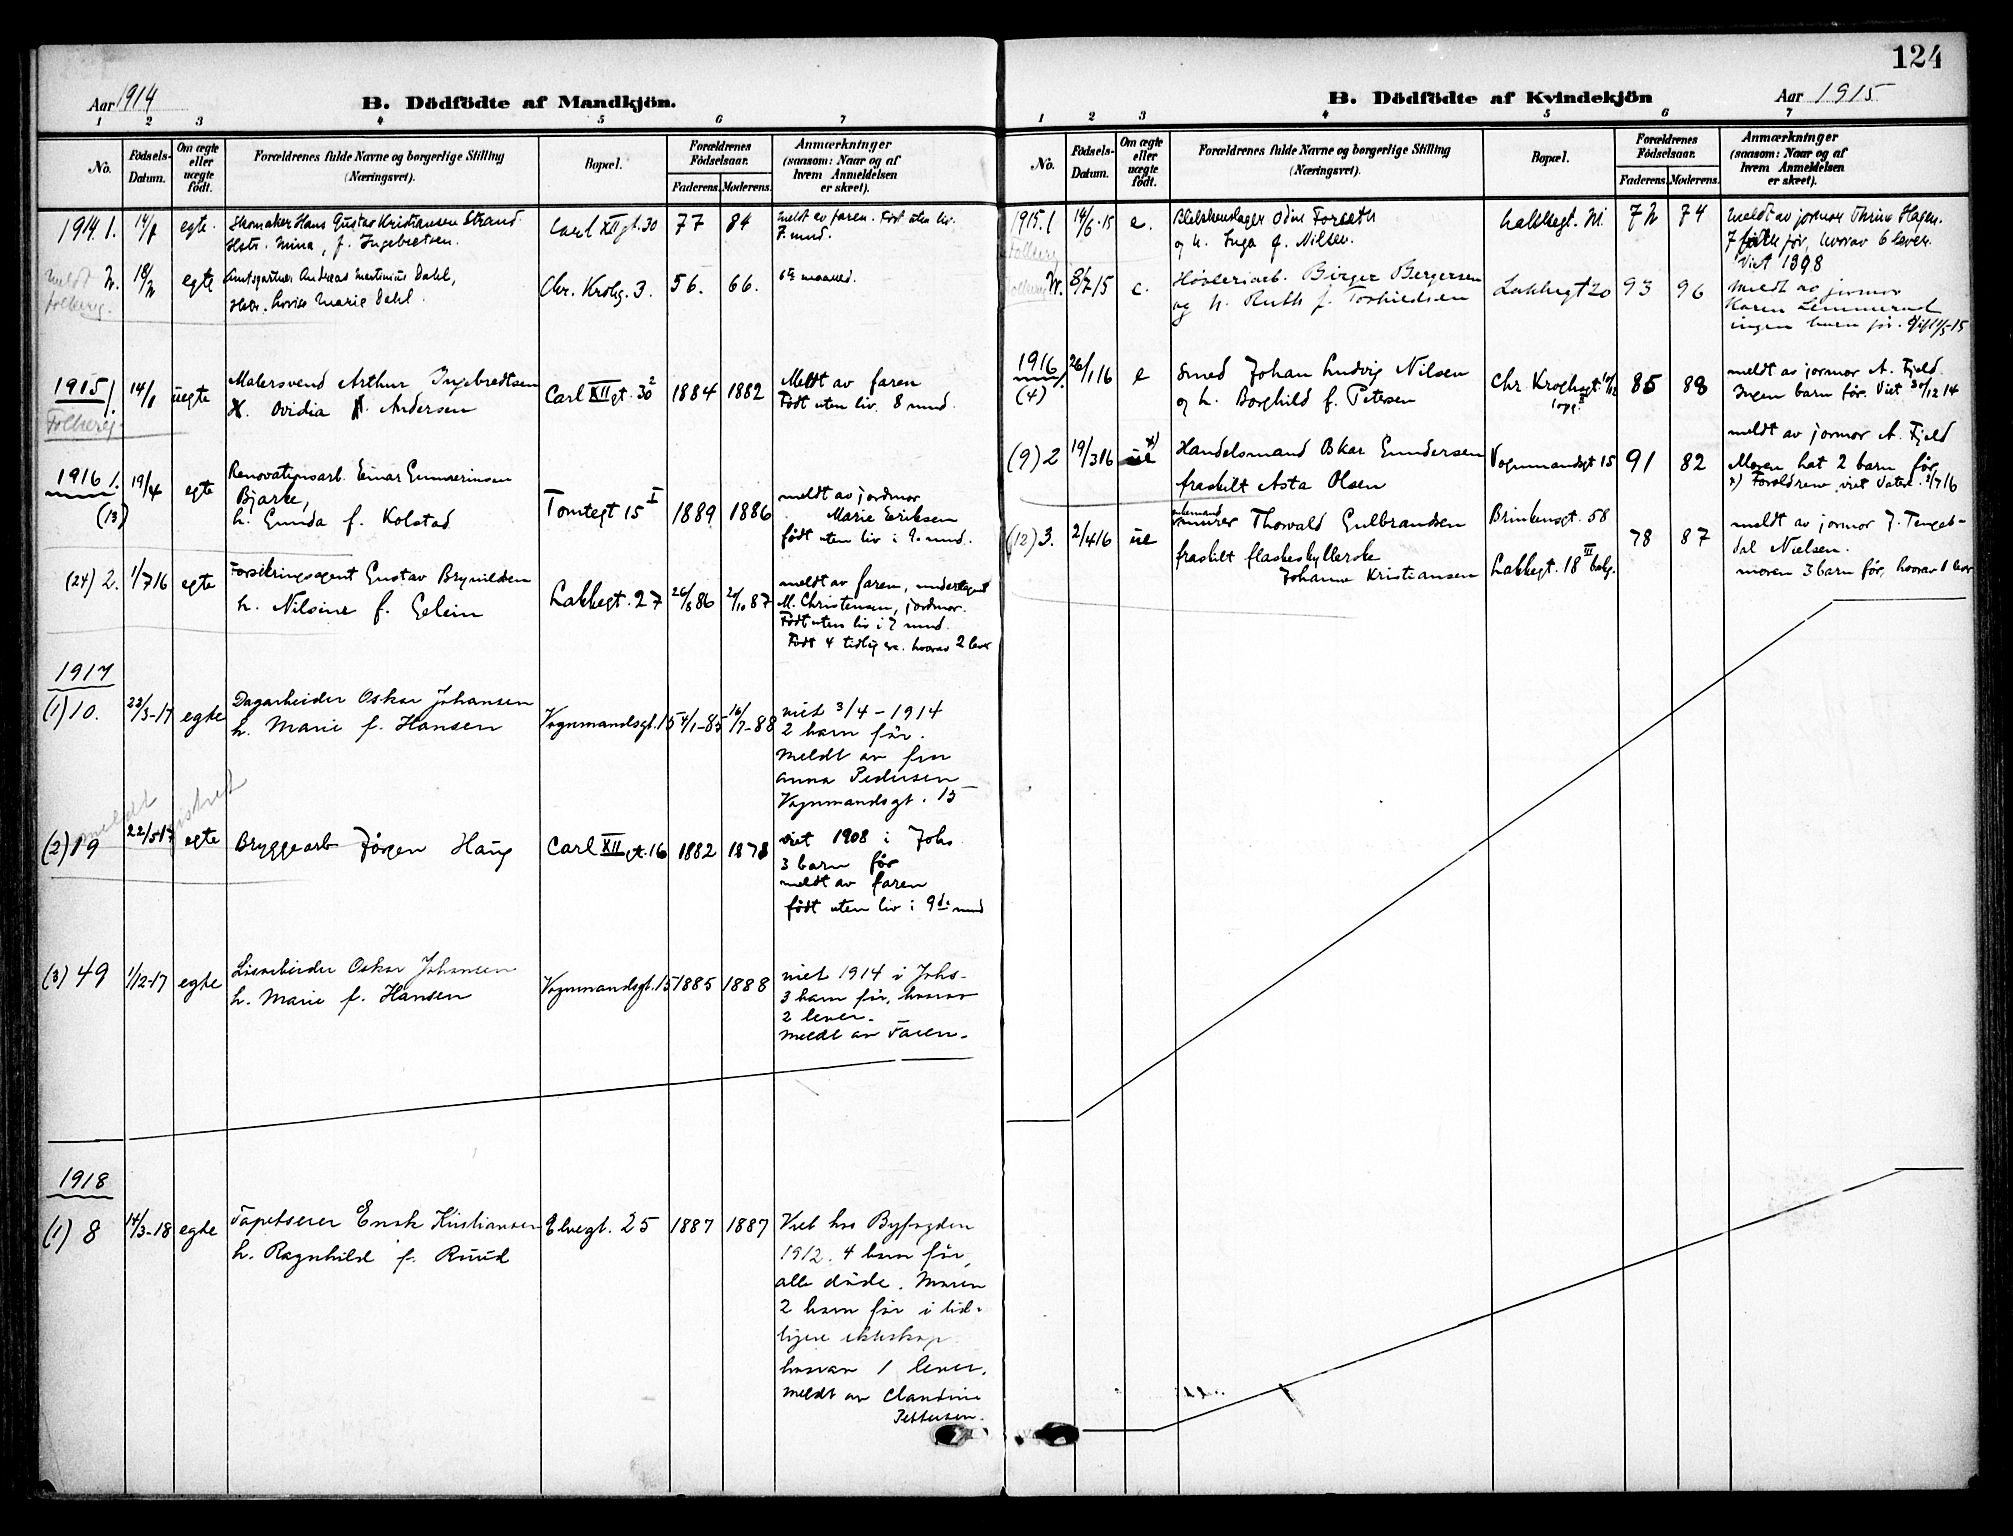 124
Aar 1914
B. Dödfödte af Mandkjön.
1 2 3 4 5 6 7
No.
Födsels-Datum.
Om ægte eller uægte födt.
Forældrenes fulde Navne og borgerlige Stilling
(Næringsvei).
Bopæl.
Forældrenes Födselsaar.
Faderens. Moderens.
Anmærkninger
(saasom: Naar og af
hvem Anmeldelsen
er skeet).
1914. 1. egte. Skomaker Hans Gustav Kristiansen Strand Carl XII gt. 30 77 84 Meldt av faren. Født uten liv.
Hstr. Mina, f. Ingebretsen. 7. mnd.
2. 18/2 egte Amtsgartner Andreas Martinius Dahl, Chr. Krohg. 3. 56. 66.
Hstr. Lovise Marie Dahl.
1915 1. uegte Malersvend Arthur Ingebredtsen Carl XII gt. 30 1884 1882 Meldt av faren
Ovidia Andersen Født uten liv. 8 mnd.
1916 1. 19/4 egte Renovationsarb. Einar Gunnerinsen
(13) Bjarke, Tomtegt 15 I 1889 1886 meldt av jordmor
h. Gunda f. Kolstad Marie Eriksen
født uten liv i 9. mnd.
(24) 2. 1/7 16 egte Forsikringsagent Gustav Brynildsen Lakkegt. 27 26/8 86 87 meldt av faren,
h. Nilsine f. Gelein M. Christensen, jordmor.
Født uten liv i 7 mnd.
Født 4 tidlig ere. hvorav 2 lever
1917
(1) 10. 23/3-17 egte Dagarbeider Oskar Johansen Vognmandsgt. 15 4/1-85 16/7-88 viet 3/4-1914
h. Marie f. Hansen 2 barn før.
Meldt av fru
Anna Pedersen
Vognmandsgt. 15
meldt
(2) 19 22/5 17 egte Bryggearb Jørgen Haug Carl XII gt. 16 1882 1878 viet 1908 i Johs.
3 barn før
meldt av faren
født uten liv i 9de mnd
(3) 49 1/12-17 egte Oskar Johansen Vognmandsgt. 15 1885 1888 viet 1914 i Johs-
h. Marie f. Hansen 3 barn før, hvorav
2 lever.
Meldt av Faren.
1918
(1) 8 14/3-18 egte Tapetserer Enok Kristiansen Elvegt. 25 1887 1887 Viet hos Byfogden
h. Ragnhild f. Ruud 1912. 4 barn før,
alle døde. Moren
2 barn før i tid-
ligere ekteskap
hvorav 1 lever.
Meldt av Claudine
Pettersen.
B. Dödfödte af Kvindekjön
Aar 1915
1 2 3 4 5 6 7
No.
Födsels-Datum.
Om ægte eller uægte födt.
Forældrenes fulde Navne og borgerlige Stilling
(Næringsvei).
Bopæl.
Forældrenes Födselsaar.
Faderens. Moderens.
Anmærkninger
(saasom: Naar og af
hvem Anmeldelsen
er skeet).
1915. 1 14/6-15 e. Blikkenslager Odin Forseth Lakkegt. 72 74 Meldt av jormor Thrine Hagen.
og h. Inga f. Nilsen. 7 før, hvorav 6 lever.
Viet 1898
2. 15 e. Høvleriarb. Birger Bergersen Lakkegt 20 93 96 Meldt av jormor
og h. Ruth f. Torkildsen Karen Lemmerud
ingen barn før. Gift 11/5-15
1916 1 26/1 16 e Smed Johan Ludvig Nilsen Chr Kroghsgt. 85 88 meldt av jormor A. Fjeld.
(4) og h. Borghild f. Petersen Ingen barn før. Viet 30/12 14
(9) 2 19/3 16 ue x) Handelsmand Oskar Gundersen Vognmandsgt 15 91 82 meldt av jormor A. Fjeld
fraskilt Asta Olsen Moren hat 2 barn før
x) Forældrene viet 7/16
(12) 3. 2/4 16 ue murer Thorvald Gulbrandsen Brinkensgt. 58 78 87 meldt av jormor J. Tengels-
fraskilt flaskeskyllerske dal Nielsen.
Johanne Kristiansen Lakkegt. 18 III moren 3 barn før, hvorav 1 lever